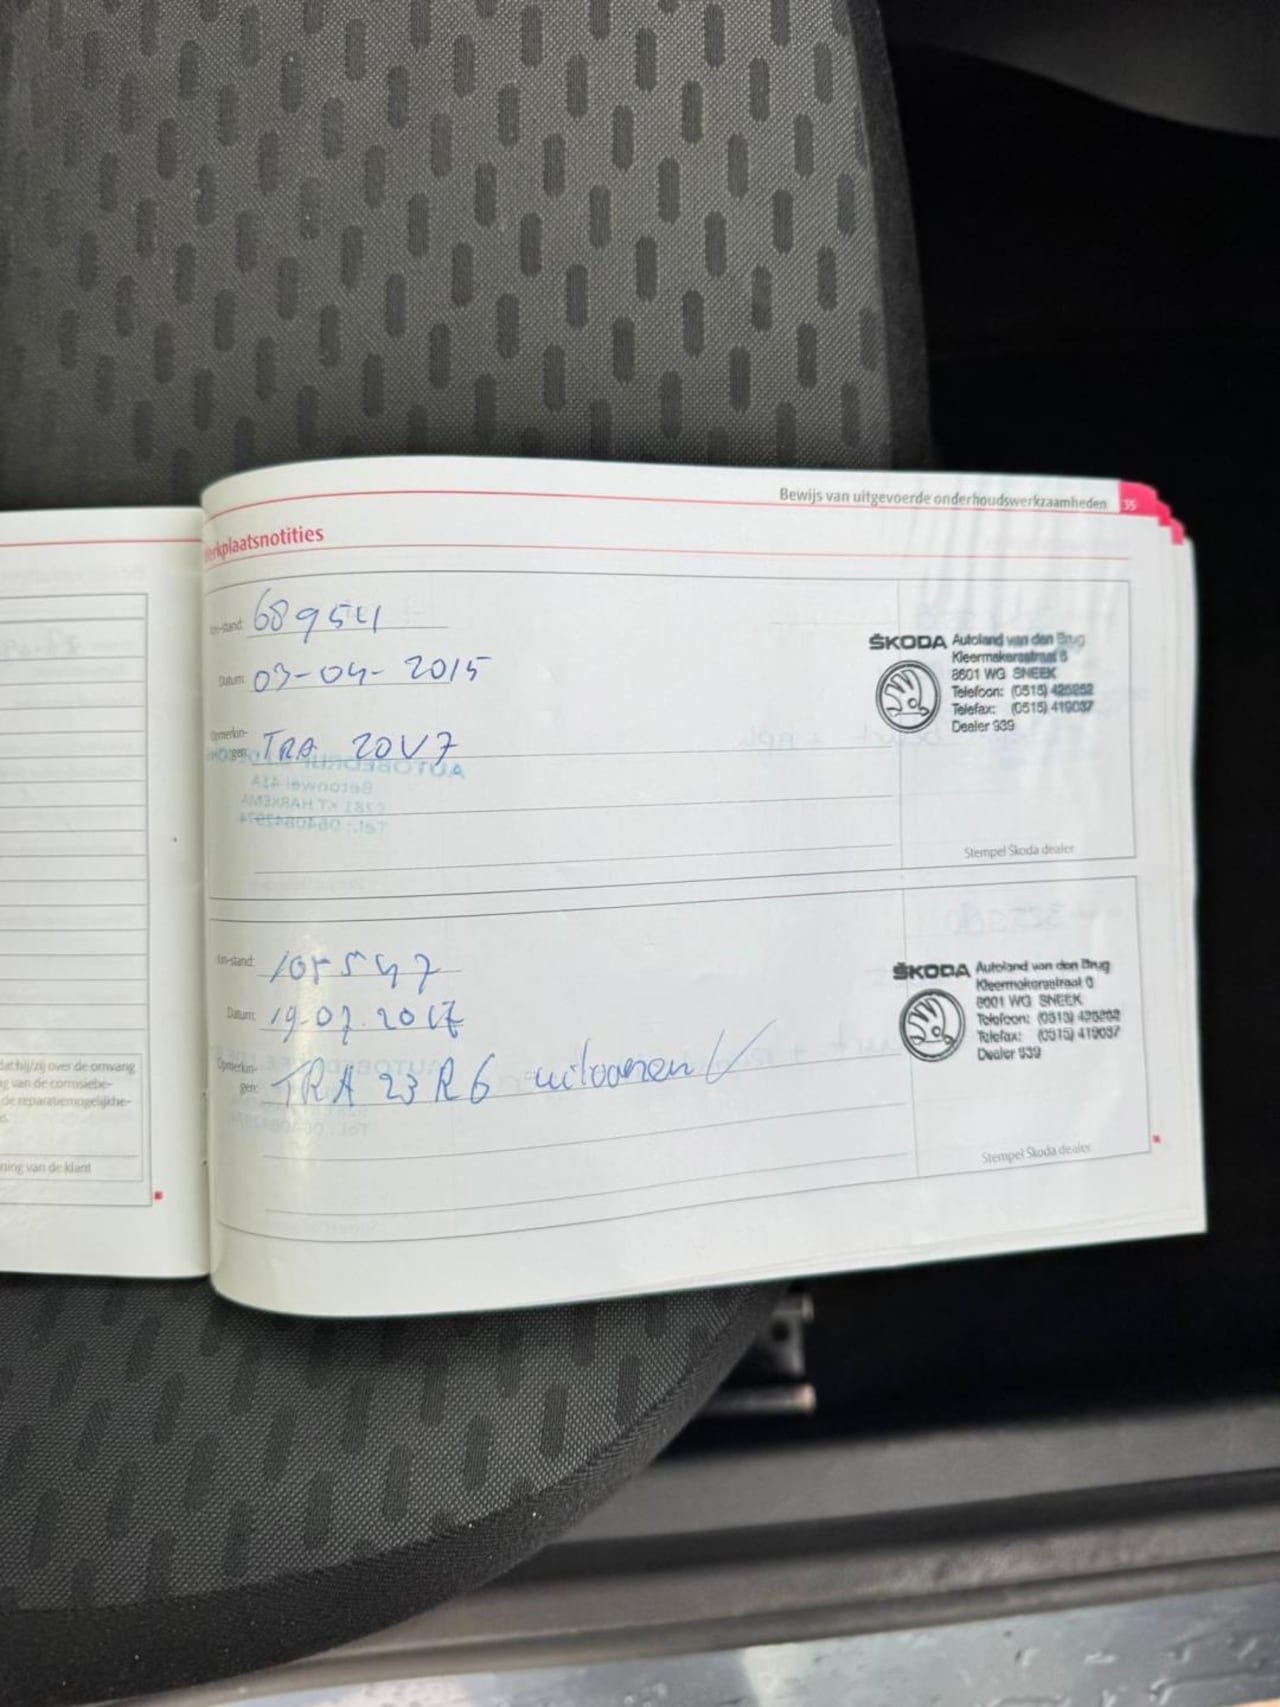 Bewijs van uitgevoerde onderhoudswerkzaamheden 35
erkplaatsnotities
Km-stand: 68954
Datum: 03-04-2015
Opmerkin-
gen: TRA 20V7
ŠKODA Autoland van den Brug
Kleermakersstraat 6
8601 WG SNEEK
Telefoon: (0515) 425252
Telefax: (0515) 419037
Dealer 939
Stempel Škoda dealer
Km-stand: 105547
Datum: 19-07-2017
Opmerkin-
gen: TRA 23R6 uitvoeren √
ŠKODA Autoland van den Brug
Kleermakersstraat 6
8601 WG SNEEK
Telefoon: (0515) 425252
Telefax: (0515) 419037
Dealer 939
Stempel Škoda dealer
dat hij/zij over de omvang
g van de corrosiebe-
de reparatiemogelijkhe-
s.
ning van de klant